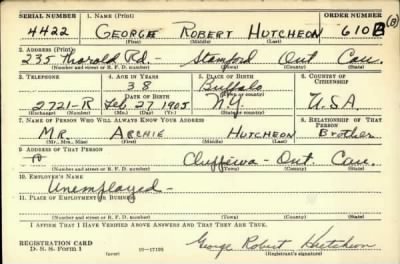 SERIAL NUMBER 1. NAME (Print) ORDER NUMBER
4422 GEORGE ROBERT HUTCHEON 610B (B)
(First) (Middle) (Last)
2. ADDRESS (Print)
235 Thorold Rd. - Stamford Ont Can.
(Number and street or R. F. D. number) (Town) (County) (State)
3. TELEPHONE 4. AGE IN YEARS 5. PLACE OF BIRTH 6. COUNTRY OF CITIZENSHIP
38 Buffalo
DATE OF BIRTH (Town or county)
2721-R Feb 27 1905 N.Y. U.S.A.
(Mo.) (Day) (Yr.) (State or country)
7. NAME OF PERSON WHO WILL ALWAYS KNOW YOUR ADDRESS 8. RELATIONSHIP OF THAT PERSON
MR. ARCHIE HUTCHEON Brother
(Mr., Mrs., Miss) (First) (Middle) (Last)
9. ADDRESS OF THAT PERSON
Chippewa - Ont. Can.
(Number and street or R. F. D. number) (Town) (County) (State)
10. EMPLOYER'S NAME
Unemployed -
11. PLACE OF EMPLOYMENT OR BUSINESS
(Number and street or R. F. D. number) (Town) (County) (State)
I AFFIRM THAT I HAVE VERIFIED ABOVE ANSWERS AND THAT THEY ARE TRUE.
REGISTRATION CARD
D. S. S. Form 1 16-17105 George Robert Hutcheon
(over) (Registrant's signature)